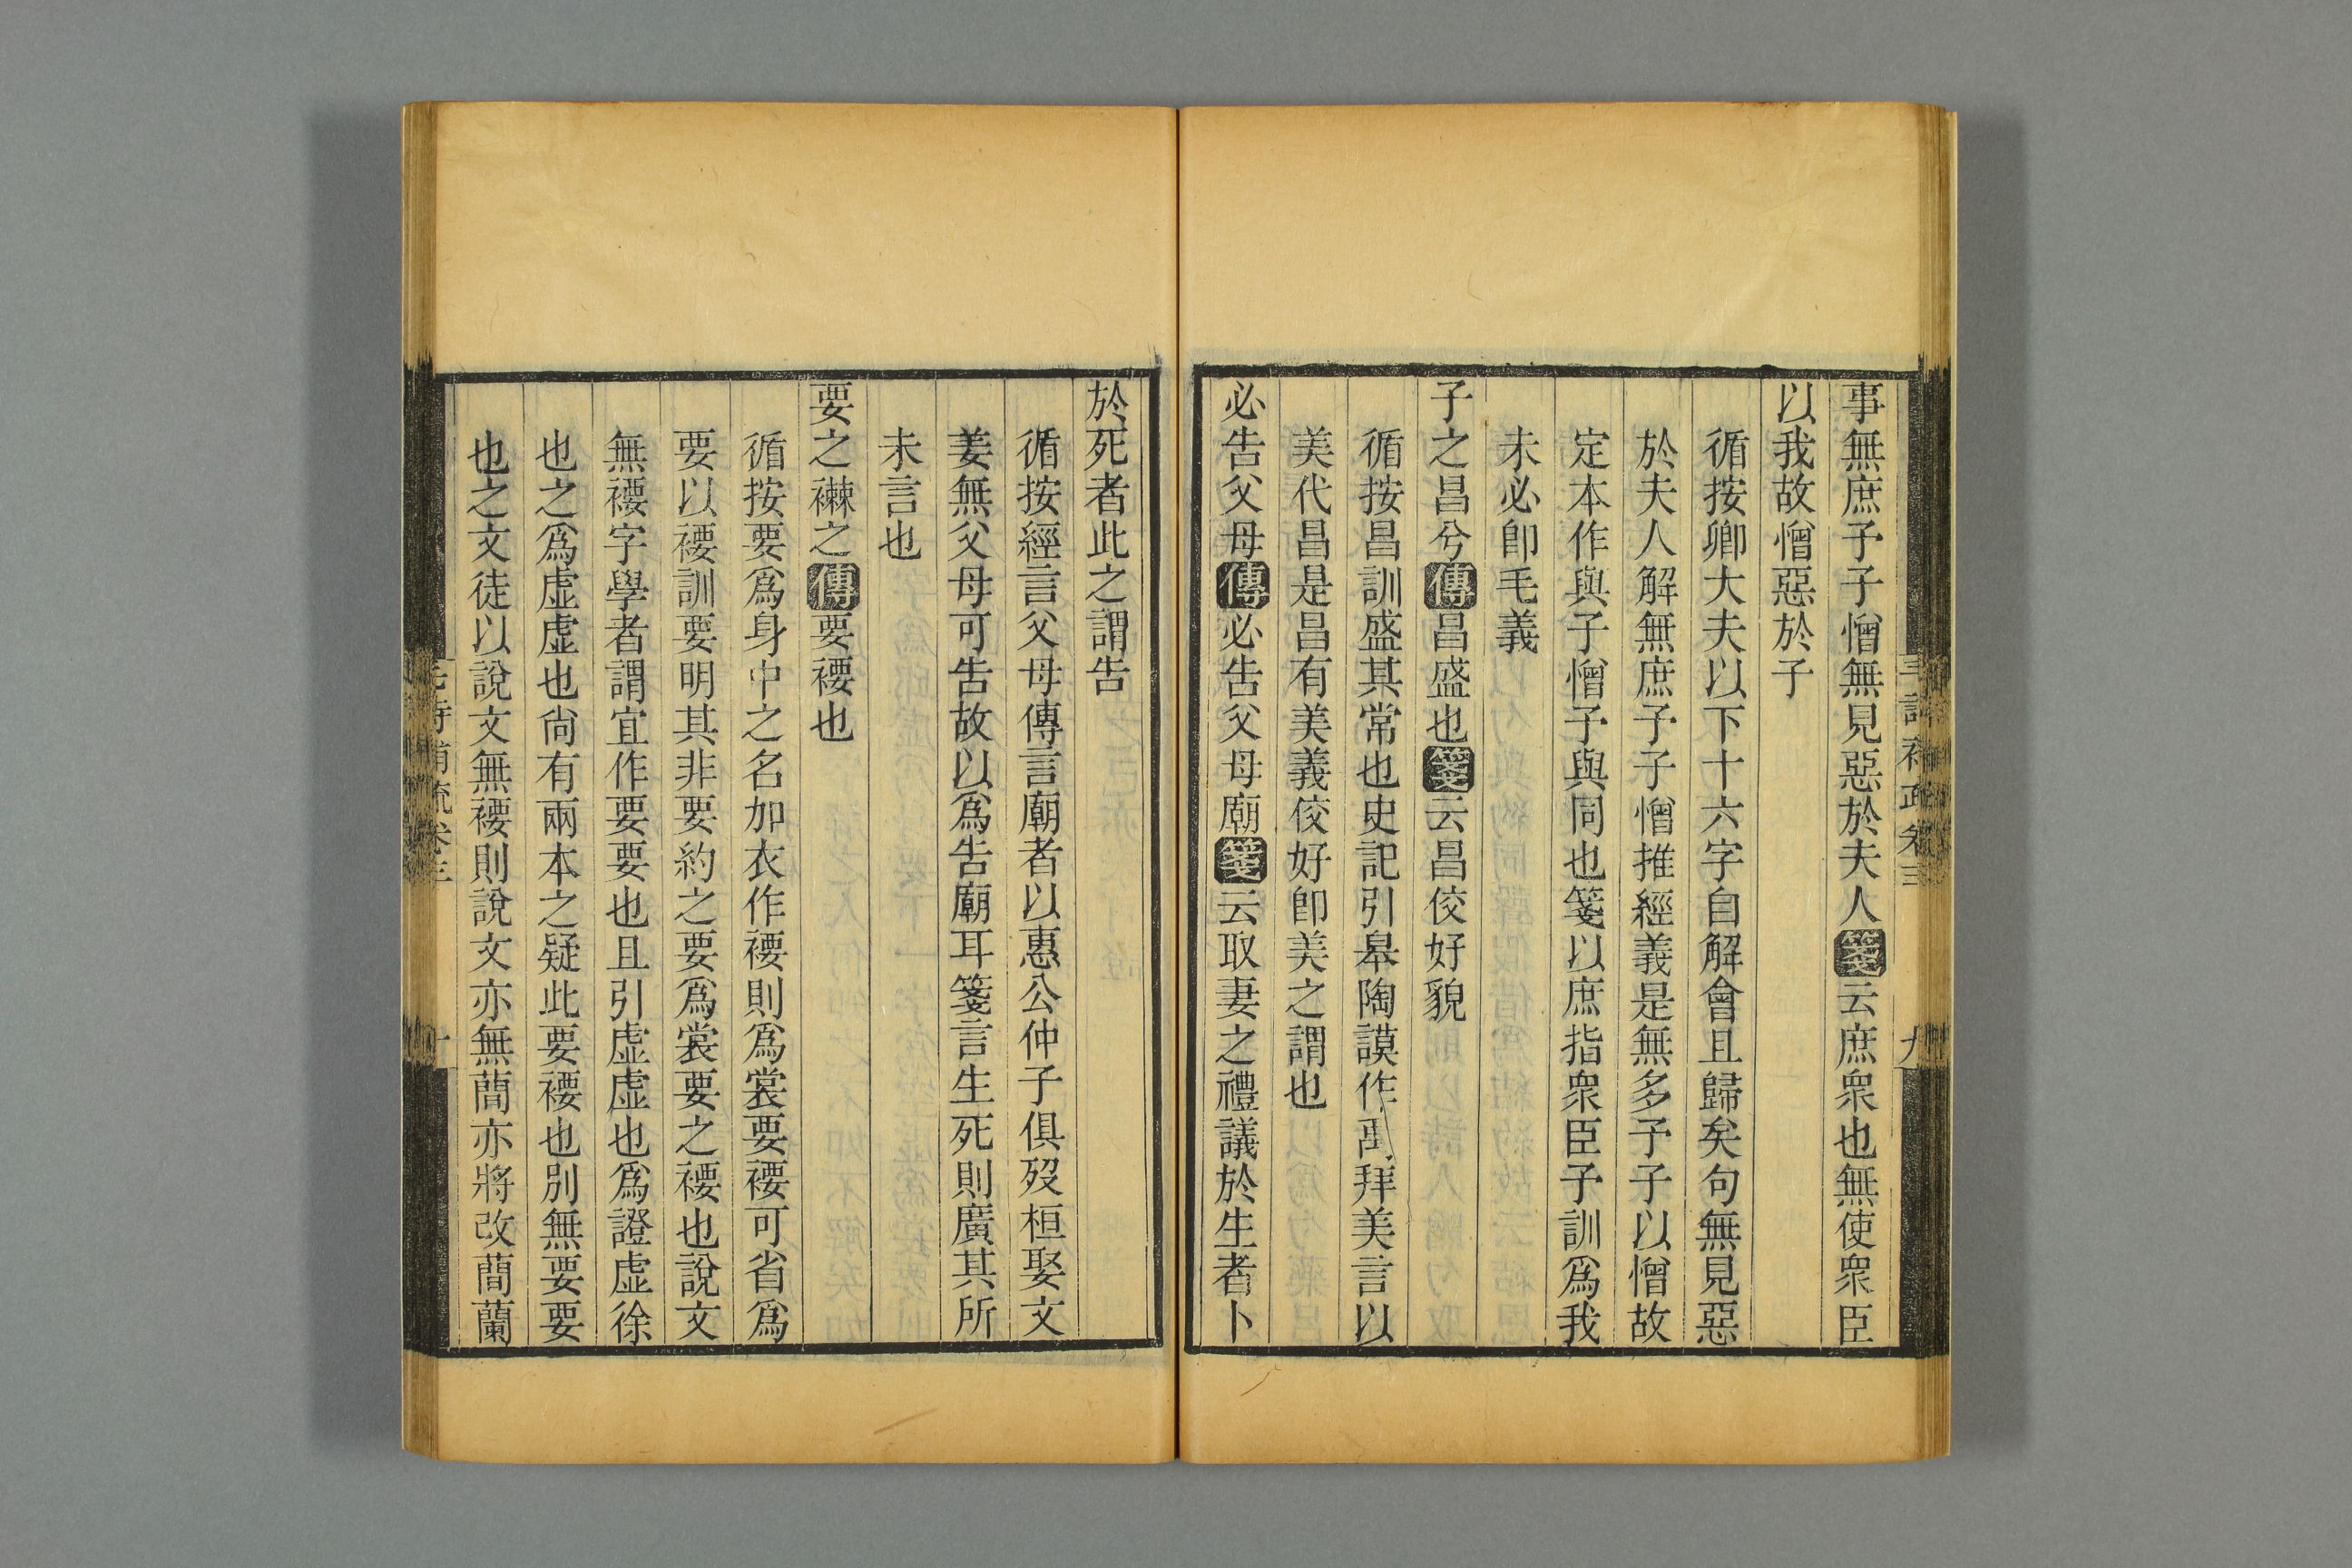 事無庶子子憎無見惡於夫人箋云庶衆也無使衆臣
以我故憎惡於子
循按卿大夫以下十六字自解會且歸矣句無見惡
於夫人解無庶子子憎推經義是無多予子以憎故
定本作與子憎子與同也箋以庶指衆臣予訓爲我
未必卽毛義
子之昌兮傳昌盛也箋云昌佼好貌
循按昌訓盛其常也史記引皋陶謨作禹拜美言以
美代昌是昌有美義佼好卽美之謂也
必告父母傳必告父母廟箋云取妻之禮議於生者卜
於死者此之謂告
循按經言父母傳言廟者以惠公仲子俱歿桓娶文
姜無父母可告故以爲告廟耳箋言生死則廣其所
未言也
要之襋之傳要䙅也
循按要爲身中之名加衣作䙅則爲裳要䙅可省爲
要以䙅訓要明其非要約之要爲裳要之䙅也說文
無䙅字學者謂宜作要要也且引虛虛也爲證虛徐
也之爲虛虛也尙有兩本之疑此要䙅也別無要要
也之文徒以說文無䙅則說文亦無蕑亦將改蕑蘭
毛詩補疏卷三